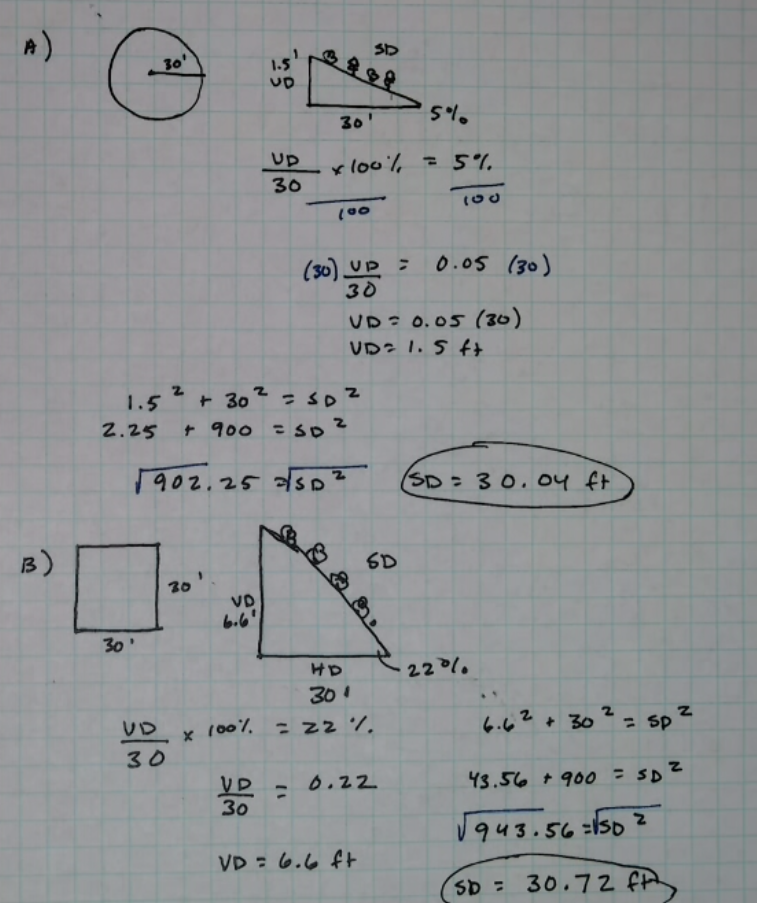 A)
30'
1.5'
VD
SD
30'
5%
VD/30 × 100% = 5%
100 100
(30) VD/30 = 0.05 (30)
VD = 0.05 (30)
VD = 1.5 ft
1.5² + 30² = SD²
2.25 + 900 = SD²
√902.25 = √SD²
SD = 30.04 ft
B)
30'
30'
VD
6.6'
SD
HD
30'
22%
VD/30 × 100% = 22%
VD/30 = 0.22
VD = 6.6 ft
6.6² + 30² = SD²
43.56 + 900 = SD²
√943.56 = √SD²
SD = 30.72 ft